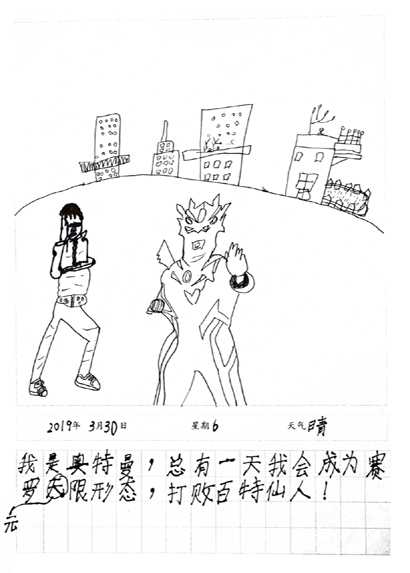 2019年 3月30日 星期6 天气晴
我是奥特曼，总有一天我会成为赛
罗无限形态，打败百特仙人！